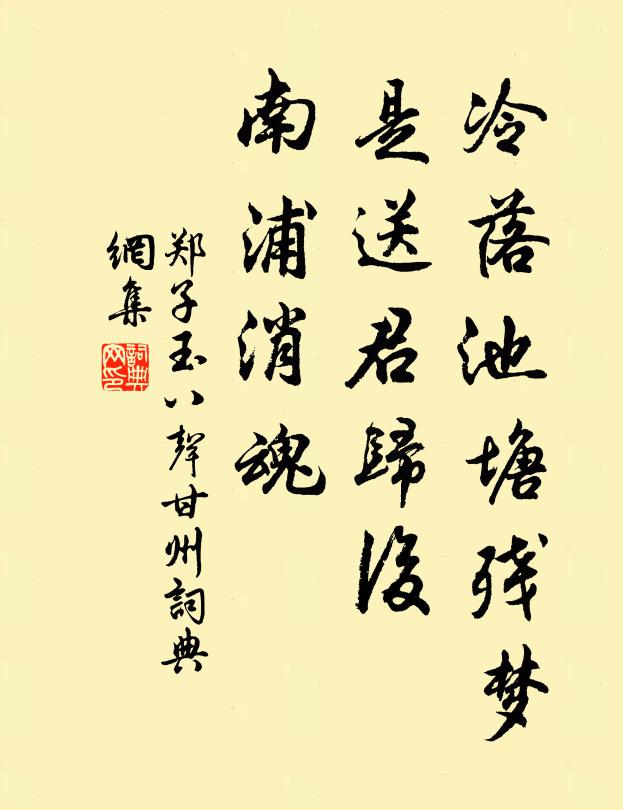 冷落池塘残梦
是送君歸後
南浦消魂
郑子玉八聲甘州詞典
網集
詞典
网印